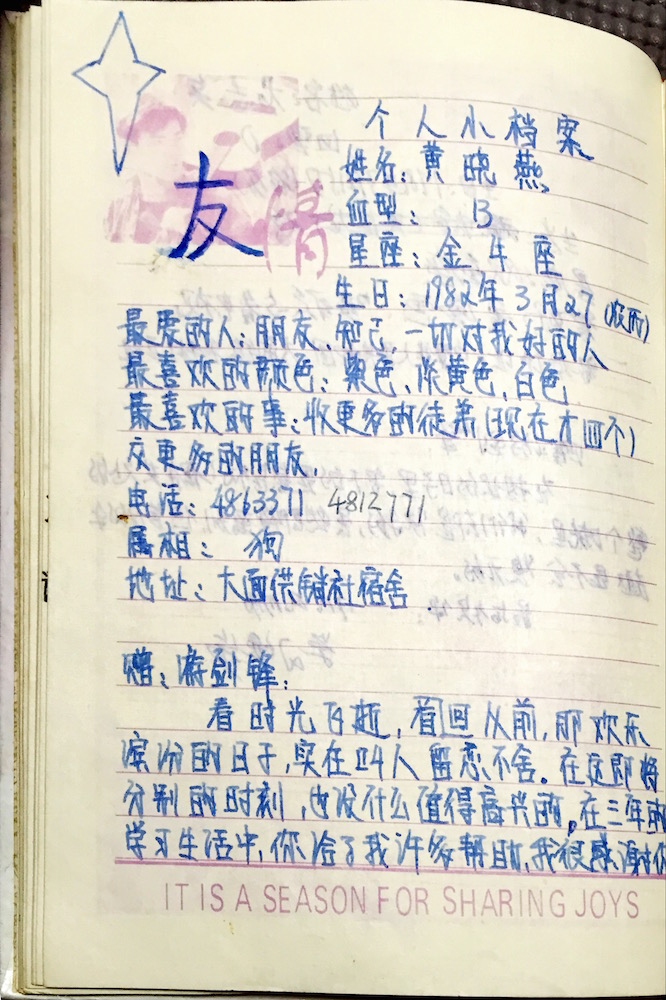 友情
个人小档案
姓名:黄晓燕
血型: B
星座:金牛座
生日:1982年3月27(农历)
最爱的人:朋友、知己、一切对我好的人
最喜欢的颜色:紫色、淡黄色、白色
最喜欢的事:收更多的徒弟(现在才四个)
交更多的朋友.
电话:4863371 4812771
属相: 狗
地址:大面供销社宿舍.
赠:游剑锋:
看时光飞逝,首回从前,那欢乐
缤纷的日子,实在叫人留恋不舍。在这即将
分别的时刻,也没什么值得高兴的。在三年的
学习生活中,你给了我许多帮助,我很感谢你
IT IS A SEASON FOR SHARING JOYS